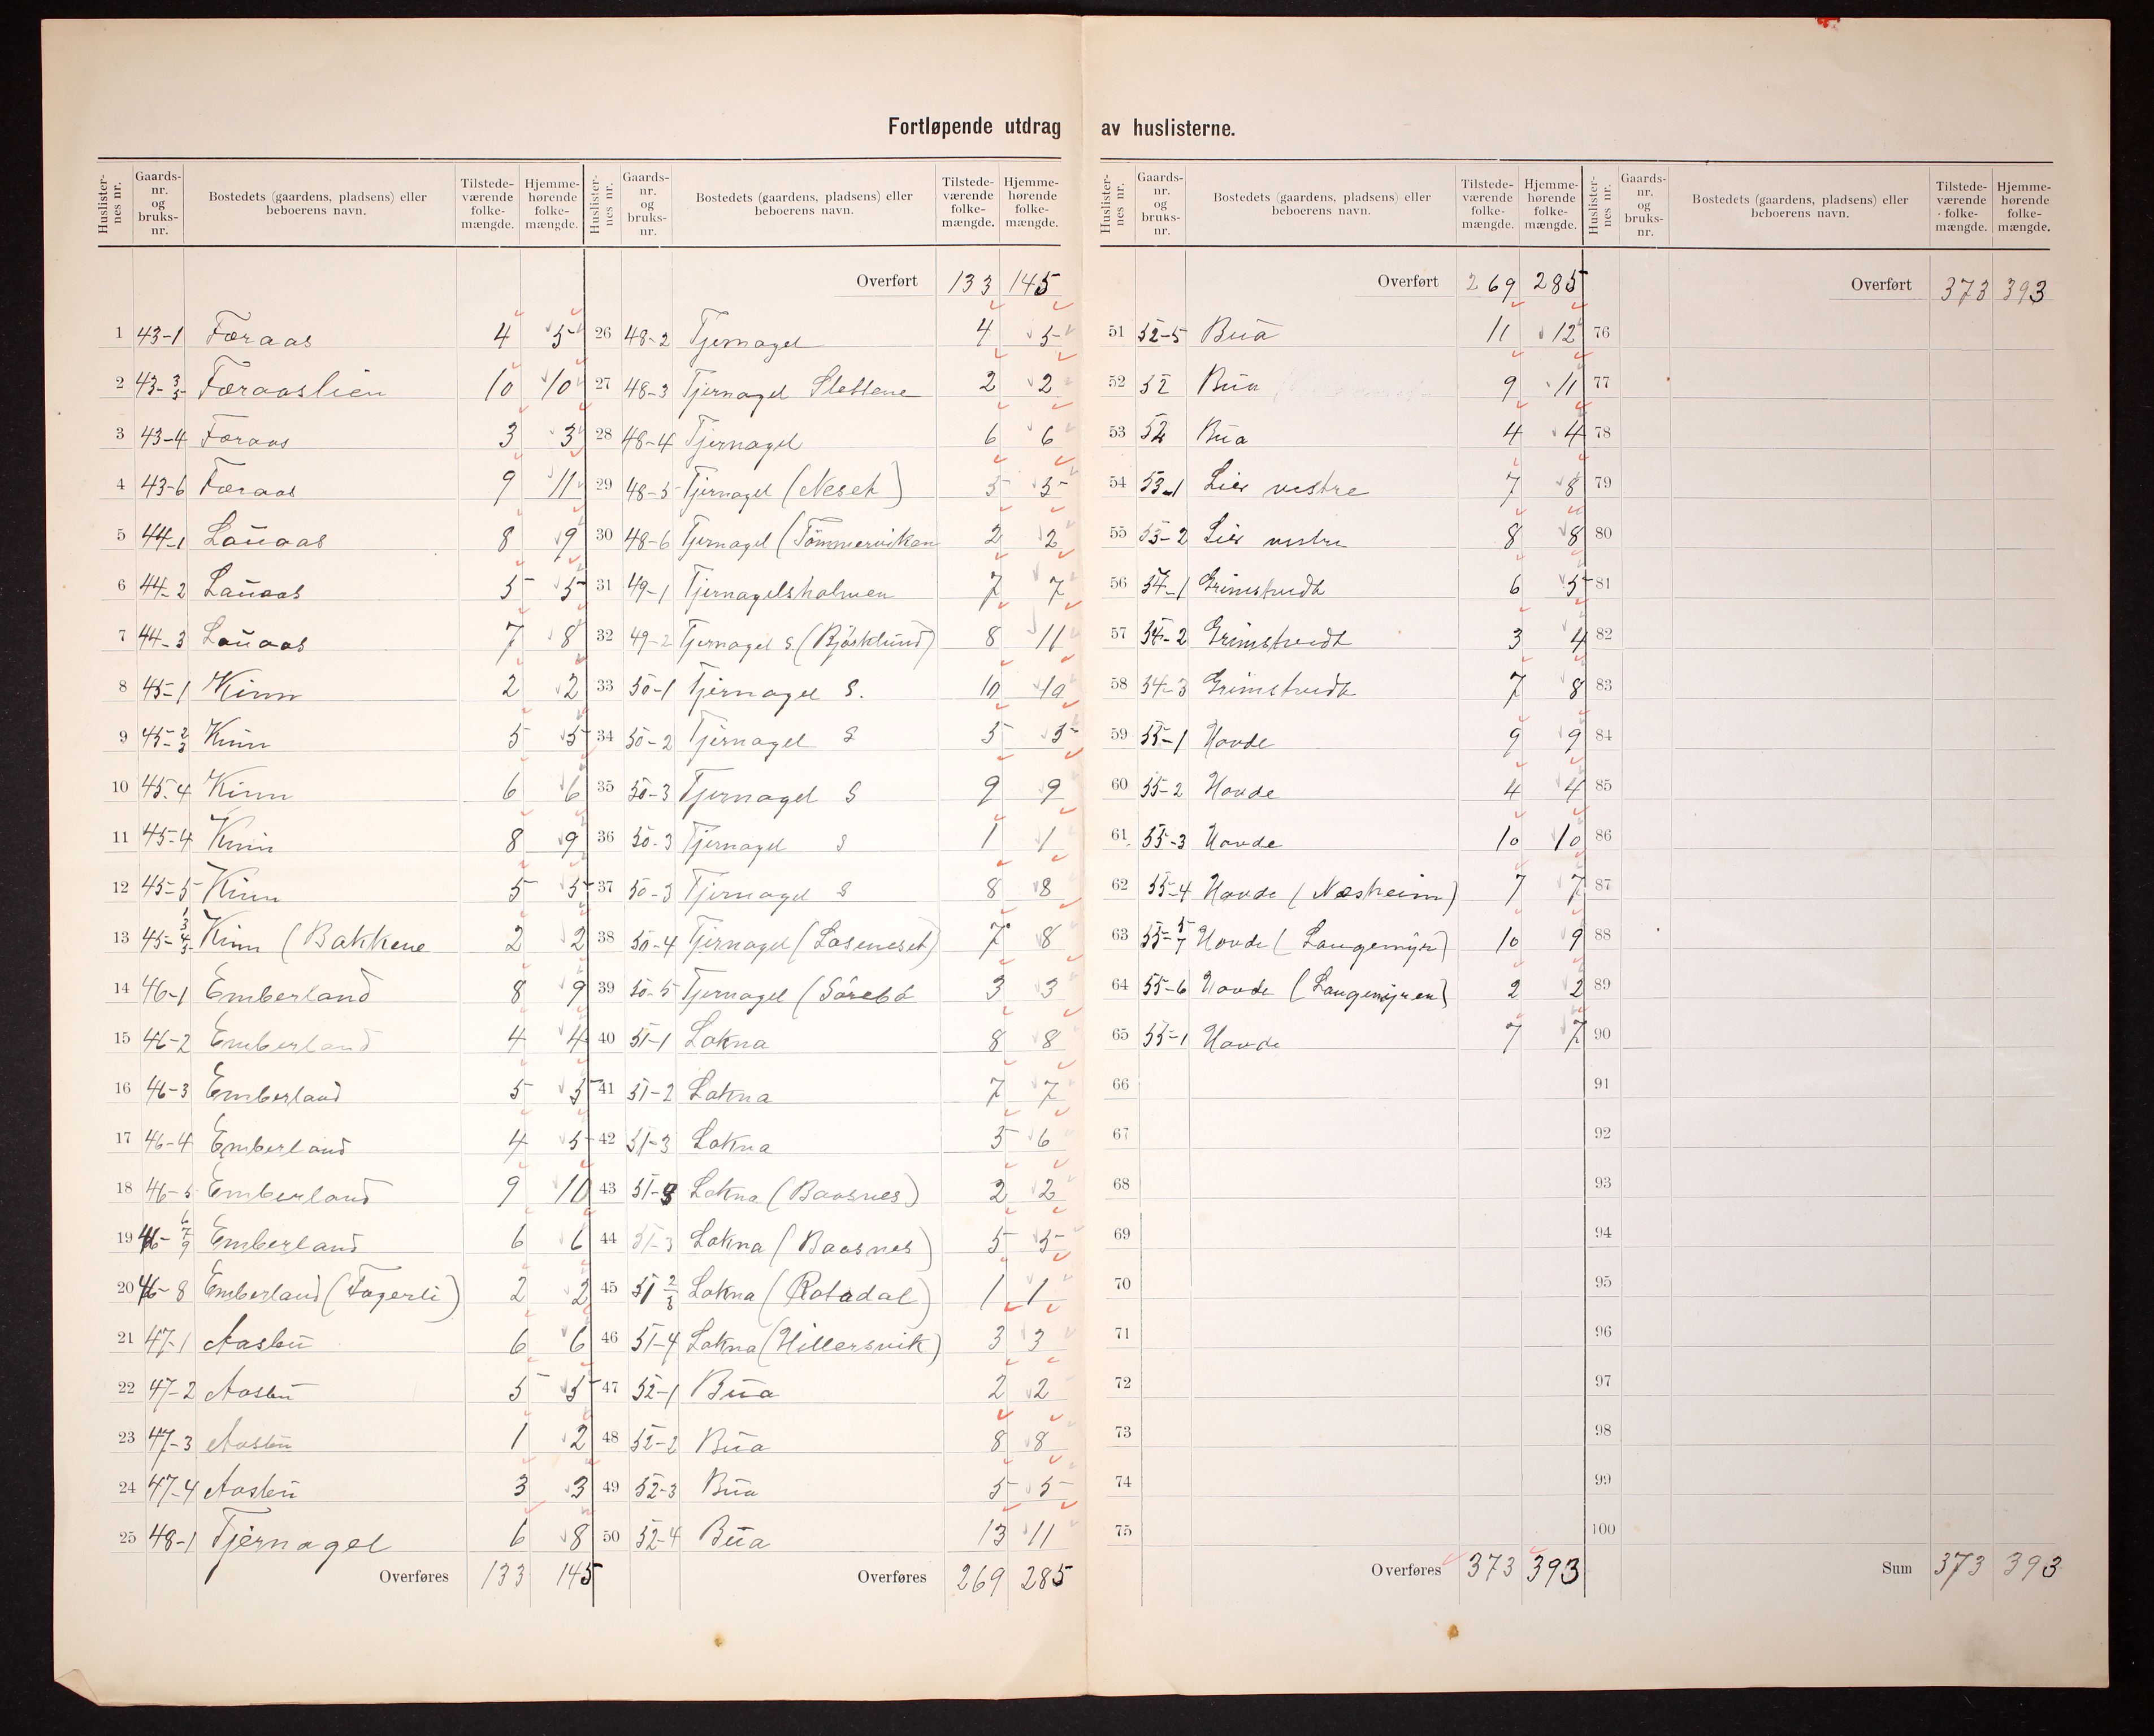 Fortløpende utdrag av huslisterne.
Huslister-nes nr. Gaards-nr. og bruks-nr. Bostedets (gaardens, pladsens) eller beboerens navn. Tilstede-værende folke-mængde. Hjemme-hørende folke-mængde.
1 43-1 Færaas 4 5
2 43-3 5 Færaaslien 10 10
3 43-4 Færaas 3 3
4 43-6 Færaas 9 11
5 44-1 Lauaas 8 9
6 44-2 Lauaas 5 5
7 44-3 Lauaas 7 8
8 45-1 Kinn 2 2
9 45-2 3 Kinn 5 5
10 45-4 Kinn 6 6
11 45-4 Kinn 8 9
12 45-5 Kinn 5 5
13 45- Kinn (Bakkene 2 2
14 46-1 Emberland 8 9
15 46-2 Emberland 4 4
16 46-3 Emberland 5 5
17 46-4 Emberland 4 5
18 46-5 Emberland 9 10
19 46-6 7 9 Emberland 6 6
20 46-8 Emberland (Fagerli) 2 2
21 47-1 Aasbu 6 6
22 47-2 Aasbu 5 5
23 47-3 Aasbu 1 2
24 47-4 Aasbu 3 3
25 48-1 Tjernagel 6 8
Overføres 133 145
Huslister-nes nr. Gaards-nr. og bruks-nr. Bostedets (gaardens, pladsens) eller beboerens navn. Tilstede-værende folke-mængde. Hjemme-hørende folke-mængde.
Overført 133 145
26 48-2 Tjernagel 4 5
27 48-3 Tjernagel Slettene 2 2
28 48-4 Tjernagel 6 6
29 48-5 Tjernagel (Neset) 5 5
30 48-6 Tjernagel (Tömmerviken 2 2
31 49-1 Tjernagelsholmen 7 7
32 49-2 Tjernagel S. (Björklund) 8 11
33 50-1 Tjernagel S. 10 10
34 50-2 Tjernagel S 5 5
35 50-3 Tjernagel S 9 9
36 50-3 Tjernagel S 1 1
37 50-3 Tjernagel S 8 8
38 50-4 Tjernagel (Laseneset) 7 8
39 50-5 Tjernagel (Sörebö 3 3
40 51-1 Lokna 8 8
41 51-2 Lokna 7 7
42 51-3 Lokna 5 6
43 51-3 Lokna (Baasnes) 2 2
44 51-3 Lokna (Baasnes) 5 5
45 51 Lokna (Rotadal) 1 1
46 51-4 Lokna (Hillersvik) 3 3
47 52-1 Bua 2 2
48 52-2 Bua 8 8
49 52-3 Bua 5 5
50 52-4 Bua 13 11
Overføres 269 285
Huslister-nes nr. Gaards-nr. og bruks-nr. Bostedets (gaardens, pladsens) eller beboerens navn. Tilstede-værende folke-mængde. Hjemme-hørende folke-mængde.
Overført 269 285
51 52-5 Bua 11 12
52 52 Bua 9 11
53 52 Bua 4 4
54 53-1 Lier vestre 7 8
55 53-2 Lier vestre 8 8
56 54-1 Grimstvedt 6 5
57 54-2 Grimstvedt 3 4
58 54-3 Grimstvedt 7 8
59 55-1 Hovde 9 9
60 55-2 Hovde 4 4
61 55-3 Hovde 10 10
62 55-4 Hovde (Næsheim) 7 7
63 55-5 7 Hovde (Langemyr) 10 9
64 55-6 Hovde (Langemyren) 2 2
65 55-1 Hovde 7 7
66
67
68
69
70
71
72
73
74
75
Overføres 373 393
Huslister-nes nr. Gaards-nr. og bruks-nr. Bostedets (gaardens, pladsens) eller beboerens navn. Tilstede-værende folke-mængde. Hjemme-hørende folke-mængde.
Overført 373 393
76
77
78
79
80
81
82
83
84
85
86
87
88
89
90
91
92
93
94
95
96
97
98
99
100
Sum 373 393